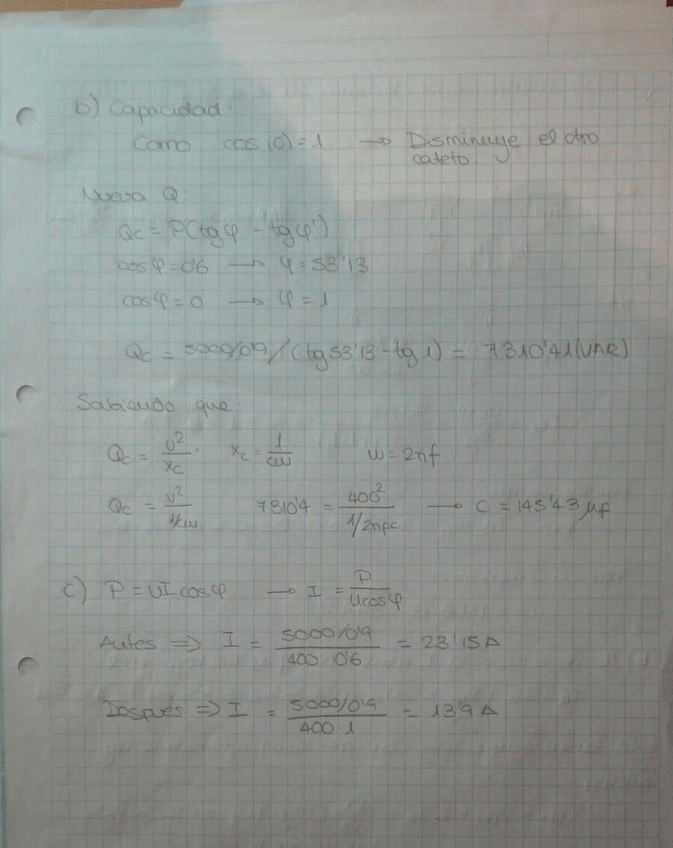 b) Capacidad:
Como cos(0)=1 → Disminuye el otro
cateto.
Nueva Q:
Qc = P(tgφ - tgφ')
cosφ=0'6 → φ=53'13
cosφ=0 → φ=1
Qc = 5000/0'9/(tg53'13-tg1) = 7310'41(VAR)
Sabiendo que:
Qc = U²/Xc. Xc = 1/cω ω=2πf
Qc = U²/1/cω 7310'4 = 400²/1/2πfc → C = 145'43 μf
c) P = UI cosφ → I = P/Ucosφ
Antes ⇒ I = 5000/0'9/400·0'6 = 23'15A
Después ⇒ I = 5000/0'9/400·1 = 13'9A